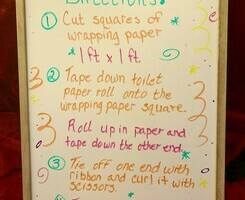 DIRECTIONS:
① Cut squares of
wrapping paper
* 1 ft x 1 ft.
② Tape down toilet
paper roll onto the
wrapping paper square.
Roll up in paper and
tape down the other end.
③ Tie off one end with
ribbon and curl it with
scissors.